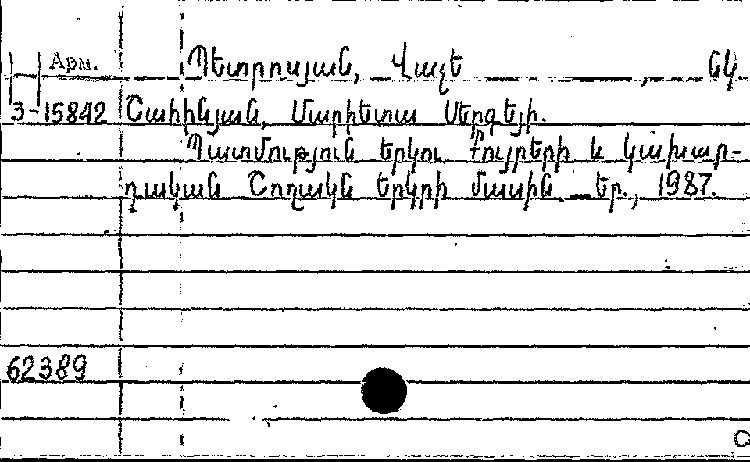 Арм. Պետրոսյան, Վաչե , նկ.
3-15842 Շահինյան, Մարիետա Սերգեյի.
Պատմություն երկու Քույրերի և կախար-
դական Շողակն երկրի մասին. _ Եր., 1987.
62389